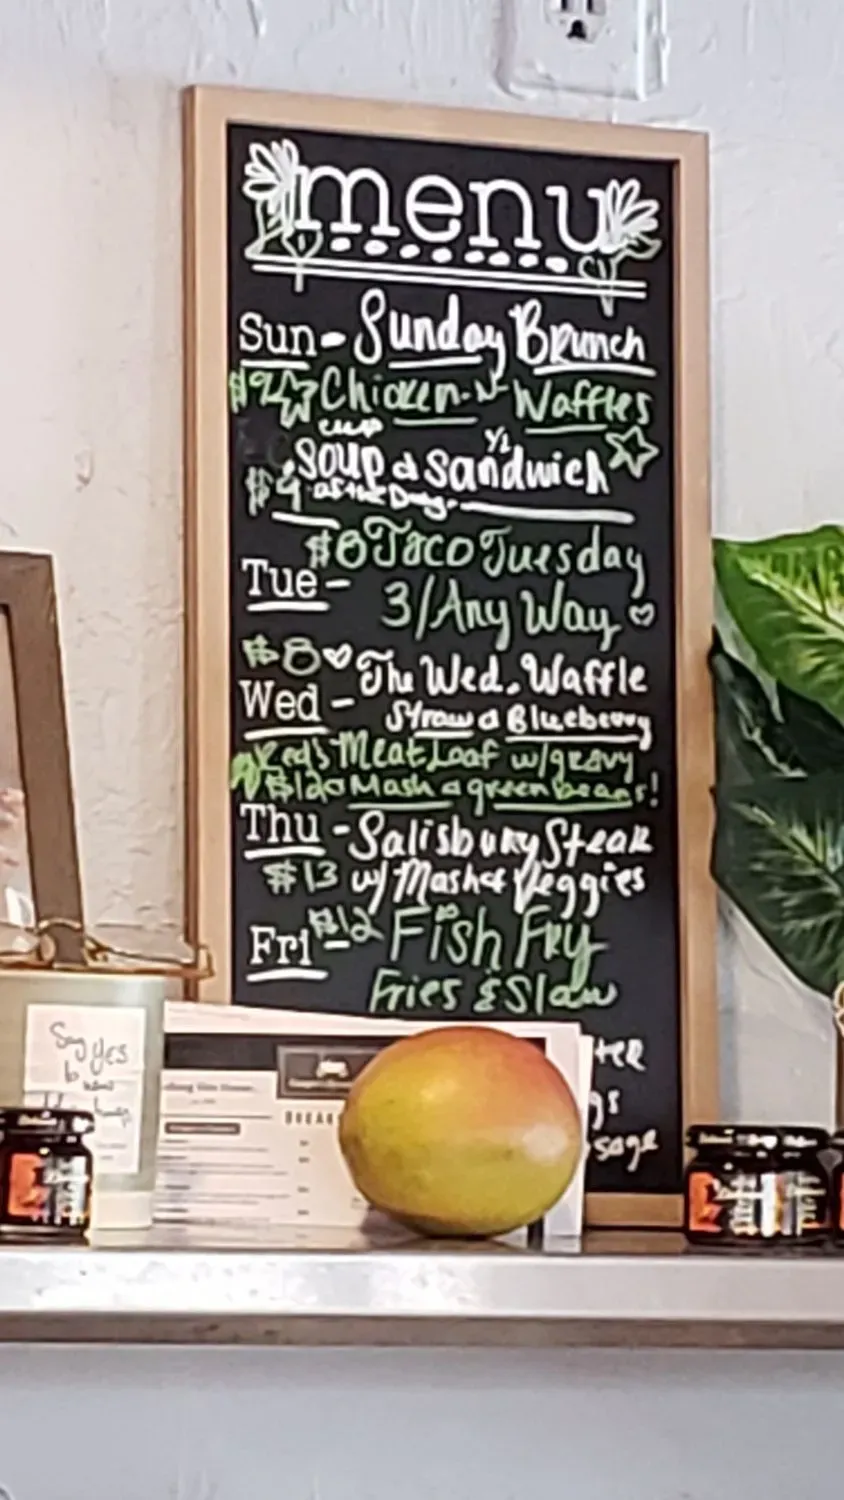 menu
Sun - Sunday Brunch
Chicken-N-Waffles
cup 1/2
Soup & Sandwich
$9 of the Day
$8 Taco Tuesday
Tue -
3/Any Way
$8 The Wed. Waffle
Wed -
Straw & Blueberry
Red's Meat Loaf w/gravy
$12 Mash & green beans!
Thu - Salisbury Steak
$13 w/ Mash & Veggies
Fri - $12 Fish Fry
Fries & Slaw
Say yes
to new
BREAK